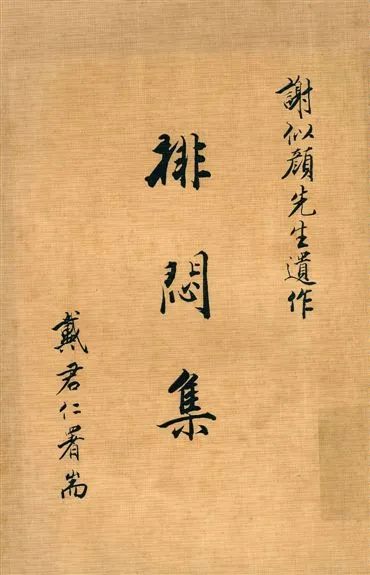 謝似顏先生遺作
排悶集
戴君仁署耑